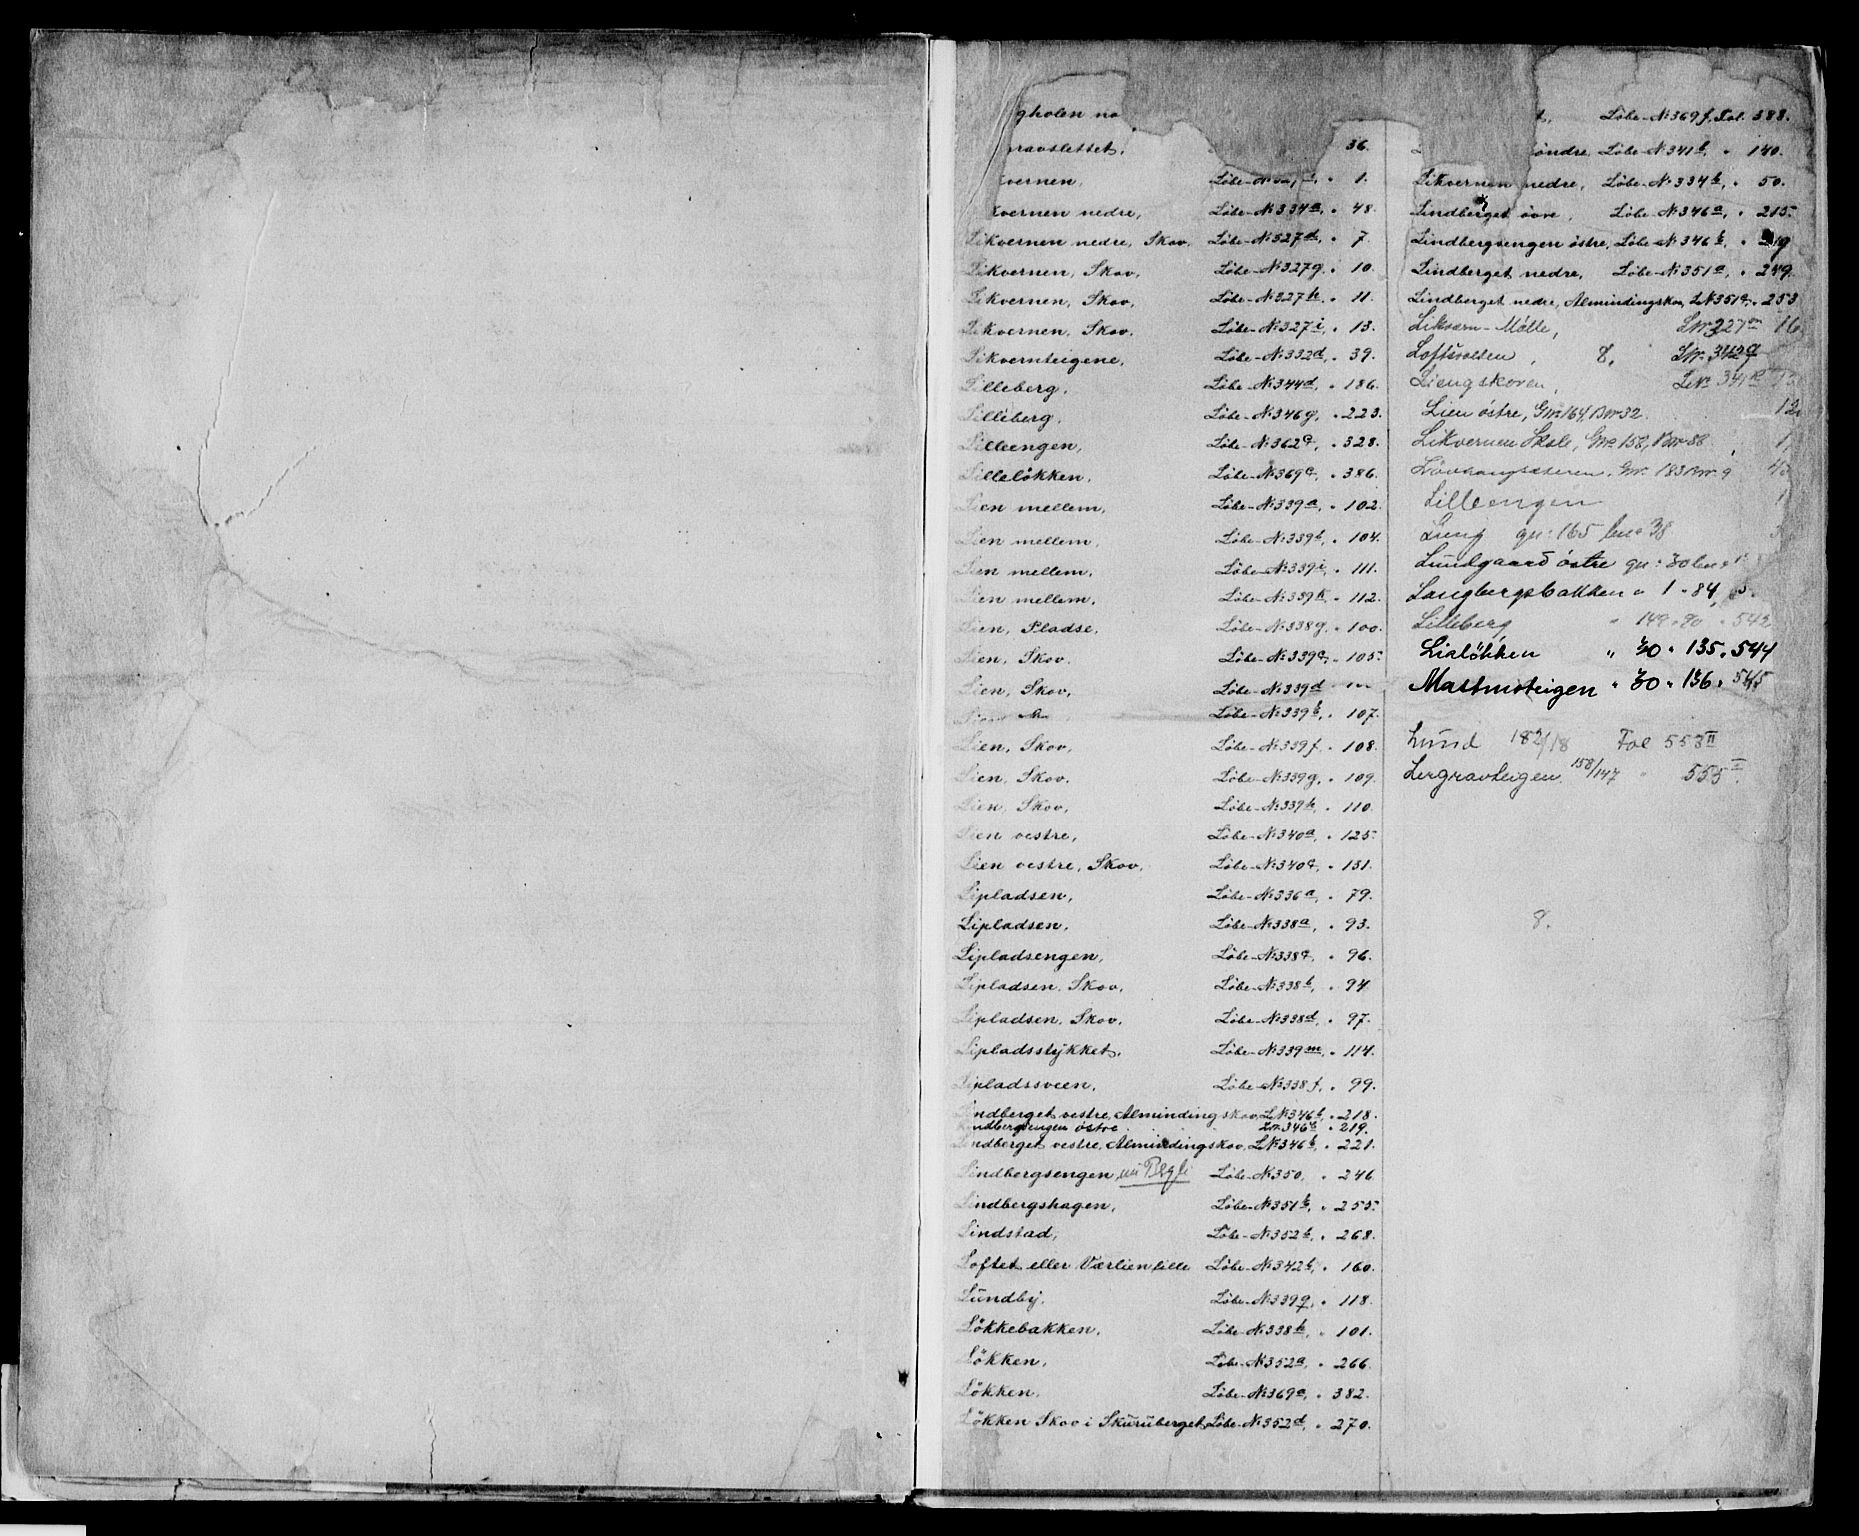 gholen no
gravslettet, 36.
kvernen, Löbe-No 1.
kvernen nedre, Löbe-No 334a, " 48.
Likvernen nedre, Skov, Löbe-No 327d, " 7.
Likvernen, Skov, Löbe-No 327g, " 10.
Likvernen, Skov, Löbe-No 327h, " 11.
Likvernen, Skov, Löbe-No 327i, " 13.
Likvernteigene, Löbe-No 332d, " 39.
Lilleberg, Löbe-No 344d, " 186.
Lilleberg, Löbe-No 346g, " 223.
Lilleengen, Löbe-No 362c, " 328.
Lilleløkken, Löbe-No 369c, " 386.
Lien mellem, Löbe-No 339a, " 102.
Lien mellem, Löbe-No 339b, " 104.
Lien mellem, Löbe-No 339i, " 111.
Lien mellem, Löbe-No 339k, " 112.
Lien, Pladse, Löbe-No 338g, " 100.
Lien, Skov, Löbe-No 339c, " 105.
Lien, Skov, Löbe-No 339d
Löbe-No 339 " 107.
Lien, Skov, Löbe-No 339f, " 108.
Lien, Skov, Löbe-No 339g, " 109.
Lien, Skov, Löbe-No 339h, " 110.
Lien vestre, Löbe-No 340a, " 125.
Lien vestre, Skov, Löbe-No 340c, " 131.
Lipladsen, Löbe-No 336a, " 79.
Lipladsen, Löbe-No 338a, " 93.
Lipladsengen, Löbe-No 338c, " 96.
Lipladsen, Skov, Löbe-No 338b, " 94
Lipladsen, Skov, Löbe-No 338d, " 97.
Lipladsstykket, Löbe-No 339m, " 114.
Lipladssveen, Löbe-No 338f, " 99.
Lindberget vestre, Almindingskov, L No 346 " 218.
Lindbergsengen østre Lno 346 " 219.
Lindberget vestre, Almindingskov, L No 346 " 221.
Lindbergsengen, nu Løbe-No 350, " 246
Lindbergshagen, Löbe-No 351b, " 255.
Lindstad, Löbe-No 352b, " 268.
Loftet eller Værlien lille Löbe-No 342b, " 160.
Lundby, Löbe-No 339q, " 118.
Løkkebakken, Löbe-No 338h, " 101.
Løkken, Löbe-No 352a, " 266.
Løkken, Löbe-No 369a, " 382.
Løkken Skov i Skuruberget, Löbe-No 352d, " 270.
Löbe-No 369f, Fol. 388.
söndre, Löbe-No 341b, " 140.
Likvernen nedre, Löbe-No 334b, " 50.
Lindberget övre, Löbe-No 346a, " 215.
Lindbergsengen østre, Löbe-No 346 " 219
Lindberget nedre, Löbe-No 351a, " 249.
Lindberget nedre, Almindingskov, L No 351c, " 253
Likvern-Mölle, Lnr 327m 16
Loftsroesen, 8, Lnr. 342g
Liengskoven, Lnr. 341
Lien östre, Gnr 164, Bnr 32. 12
Likvernen Skole, Gnr. 158, Bnr 88
Gnr. 183 Bnr. 9
Lilleengen
Lung gn: 165 bno 38
Lundgaard östre gn: 30 bno
Langbergsbakken " 1 " 84,
Lilleberg " 149 " 90 " 542
Lialökken " 30 " 135 " 544
Mastmoteigen " 30 " 136 " 545
Lund 182/18 Fol 553 II
Lergravteigen 158/147 " 555 I
8.